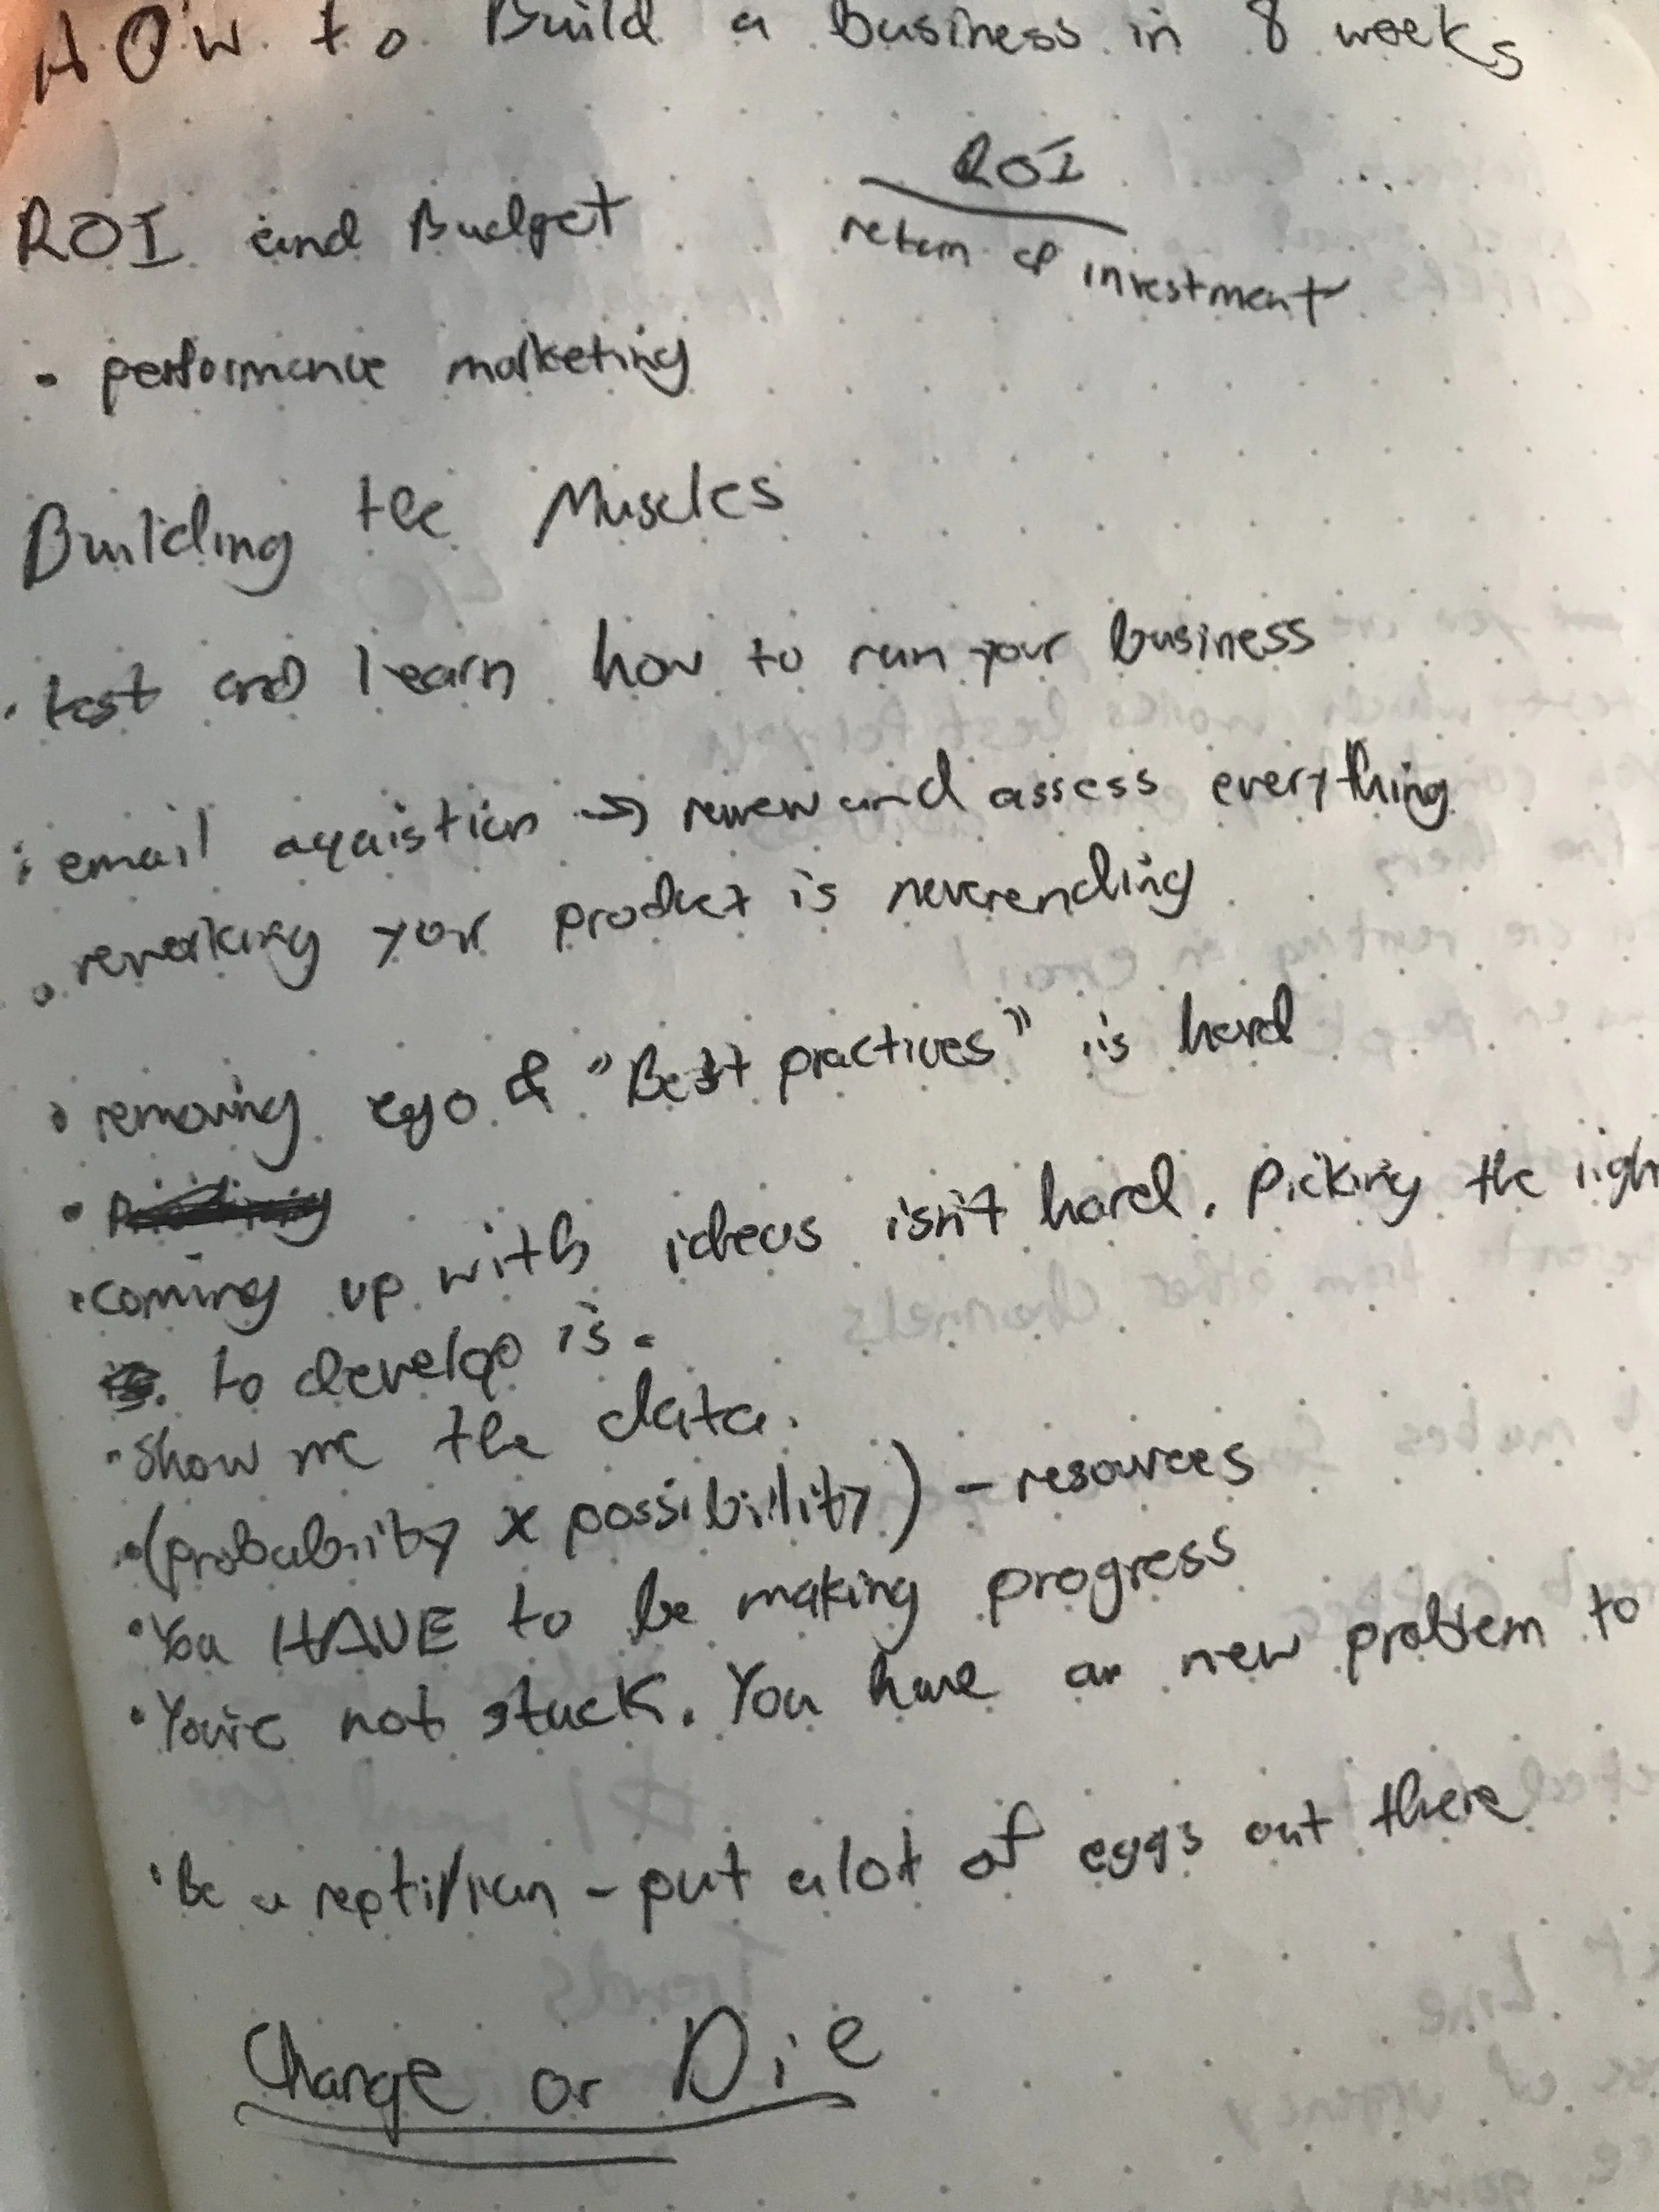 How to Build a business in 8 weeks
ROI
return of investment
ROI and Budget
• performance marketing
Building the Muscles
• test and learn how to run your business
• email aqaistion → review and assess everything
• reworking your product is neverending
• removing ego & "Best practices" is hard
•
• coming up with ideas isn't hard. Picking the righ
to develop is.
• Show me the data.
• (probability x possibility) - resources
• You HAVE to be making progress
• You're not stuck. You have a new problem to
• be a reptilian - put a lot of eggs out there
Change or Die